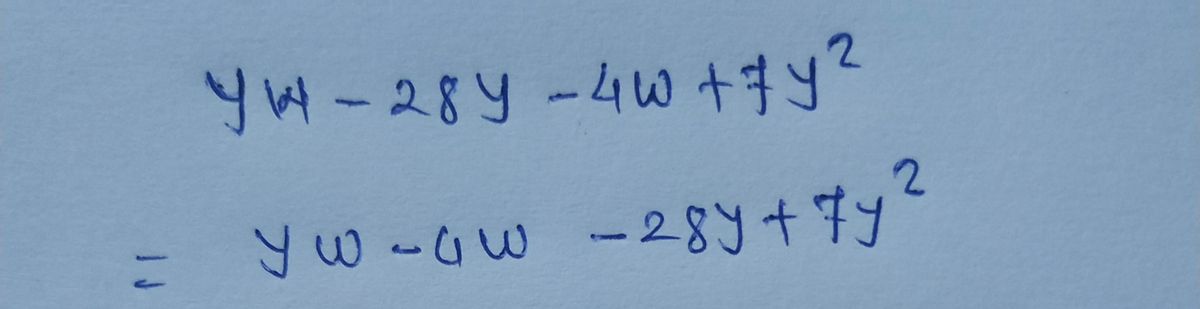 yw - 28y - 4w + 7y²
= yw - 4w - 28y + 7y²